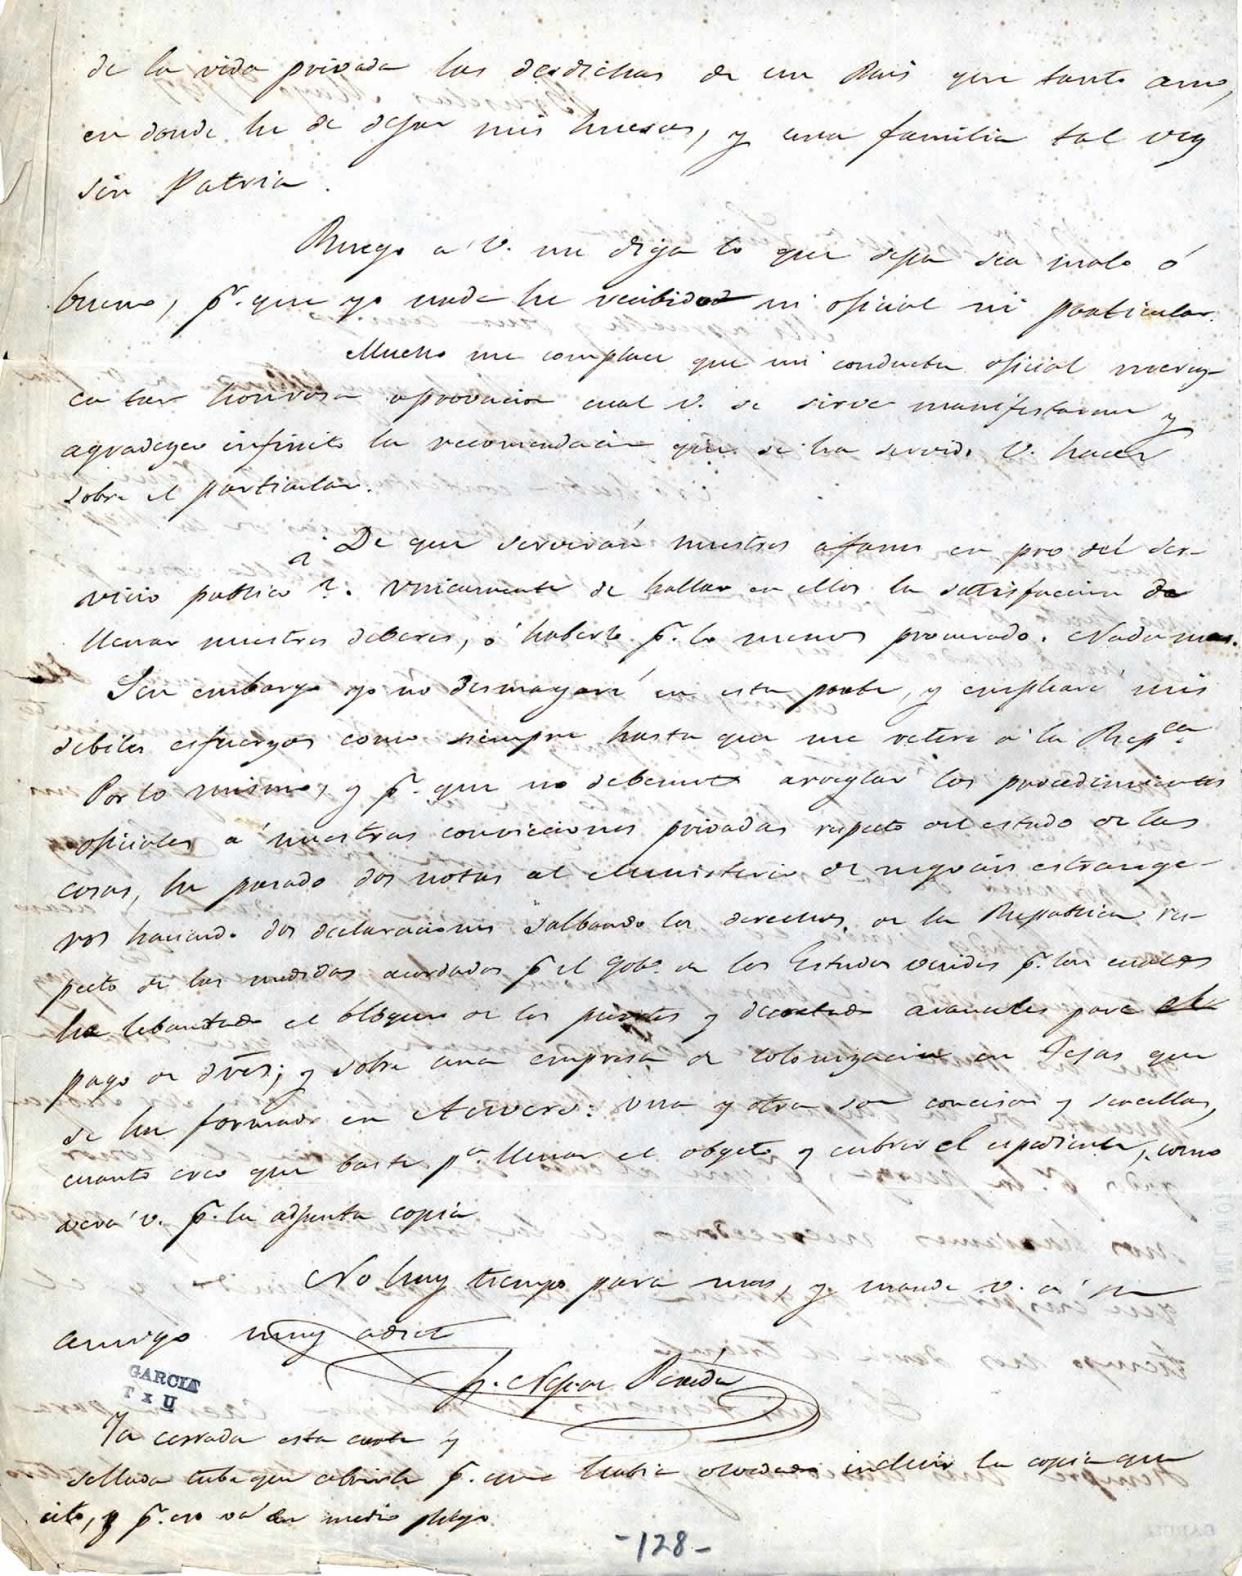 de la vida privada las desdichas de un Pais que tanto amo,
en donde he de dejar mis huesos, y una familia tal vez
sin Patria.
Ruego a V. me diga lo que sepa sea malo ó
bueno, pr. que yo nada he recibido ni oficial ni particular.
Mucho me complace que mi conducta oficial merez-
ca tan honrosa aprovacion cual V. se sirve manifestarme y
agradezco infinito la recomendacion que se ha servido V. hacer
sobre el particular.
De que serviran nuestros afanes en pro del ser-
vicio publico?. Unicamente de hallar en ellos la satisfaccion de
llenar nuestros deberes, ó haberlo pr. lo menos procurado. Nada mas.
Sin embargo yo no desmayaré en esta parte, y emplearé mis
debiles esfuerzos como siempre hasta que me retire a la Repca.
Por lo mismo, y pr. que no debemos arreglar los procedimientos
oficiales a nuestras convicciones privadas respecto del estado de las
cosas, he pasado dos notas al Ministerio de negocios estrange-
ros haciendo dos declaraciones salbando los derechos de la Republica res-
pecto de las medidas acordadas pr el Gobo. de los Estados unidos pr. las cuales
ha lebantado el bloqueo de los puertos y decretado aranceles para el
pago de dros; y sobre una empresa de colonizacion en Tejas que
se ha formado en Amvers: una y otra son concisas y sencillas,
cuanto creo que basta pa. llenar el objeto y cubrir el espediente, como
verá V. pr. la adjunta copia
No hay tiempo para mas, y mande V. a su
amigo muy adicto
GARCIA
Ya cerrada esta carta y
sellada tube que abrirla pr. que habia olvidado incluir la copia que
cito, y pr. eso vá en medio pliego.
-128-